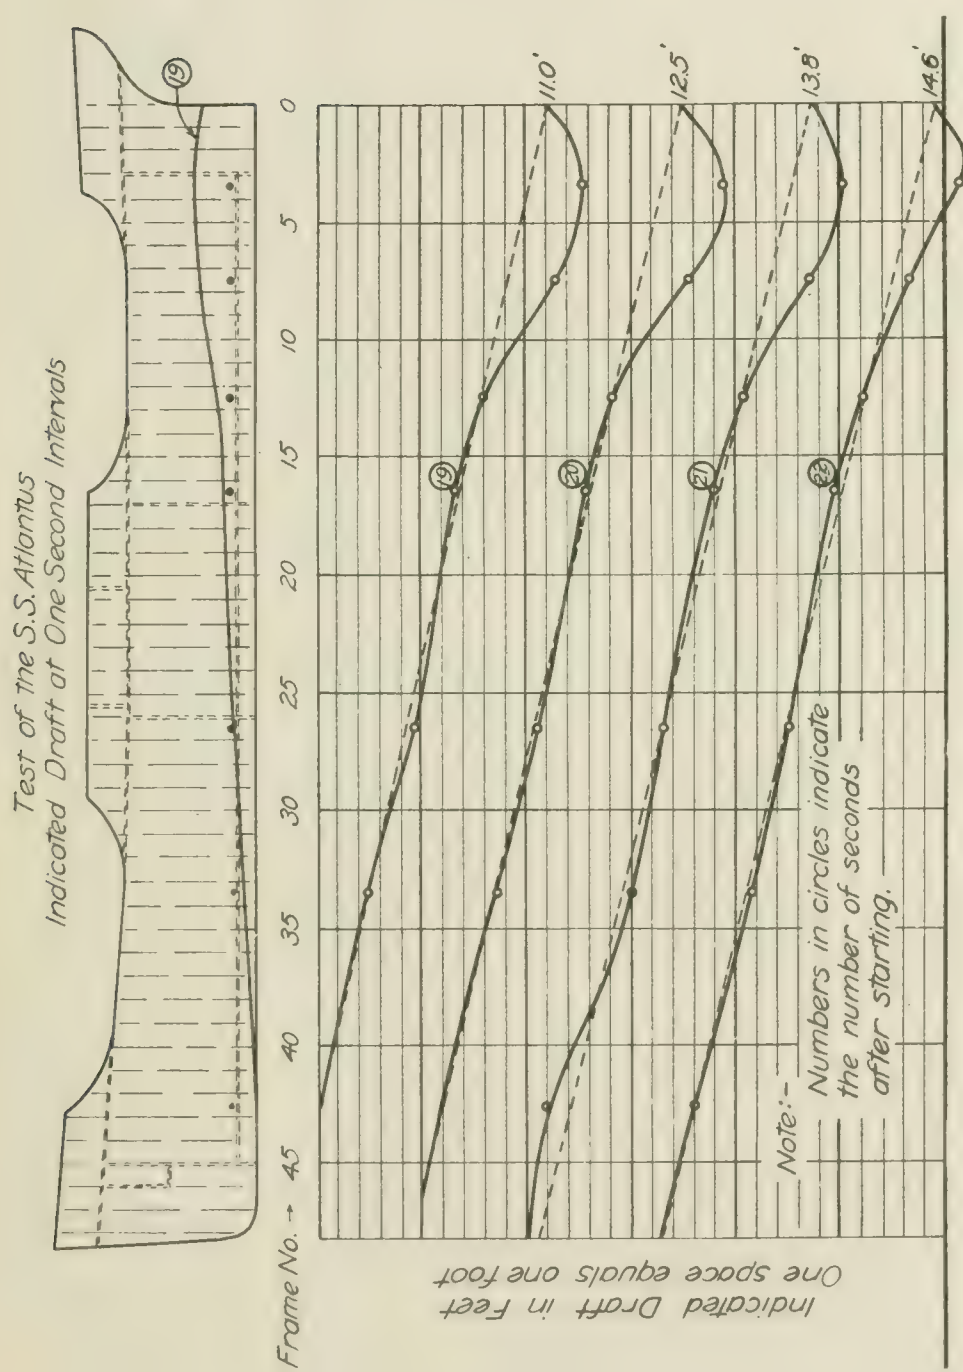 Test of the S.S. Atlantus
Indicated Draft at One Second Intervals
19
Frame No. → 45 40 35 30 25 20 15 10 5 0
11.0'
12.5'
13.8'
14.6'
19
20
21
22
Indicated Draft in Feet
One space equals one foot
Note:-
Numbers in circles indicate
the number of seconds
after starting.